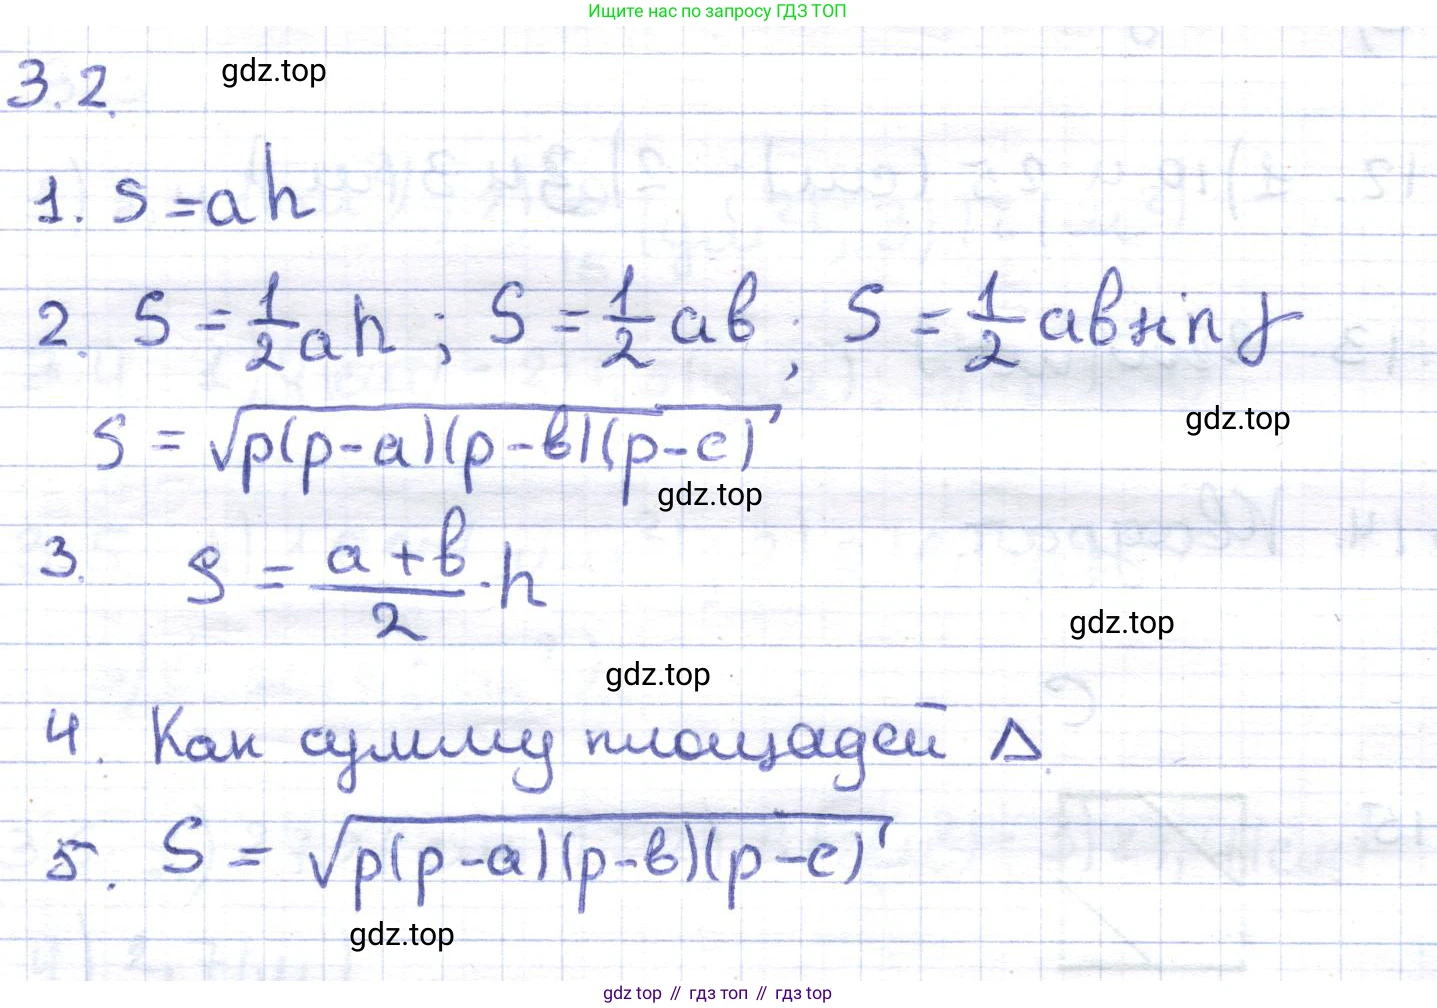 Ищите нас по запросу ГДЗ ТОП
3.2. gdz.top
1. S = ah
2. S = 1/2 ah ; S = 1/2 ab ; S = 1/2 ab sin γ
gdz.top
S = √p(p-a)(p-b)(p-c)
gdz.top
3. S = a+b/2 · h
gdz.top
gdz.top
4. Как сумму площадей Δ.
5. S = √p(p-a)(p-b)(p-c)
gdz.top
gdz top // гдз топ // гдз top